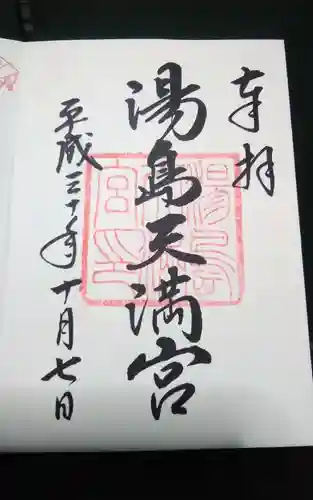 奉拝
湯島天満宮
平成三十年十月七日